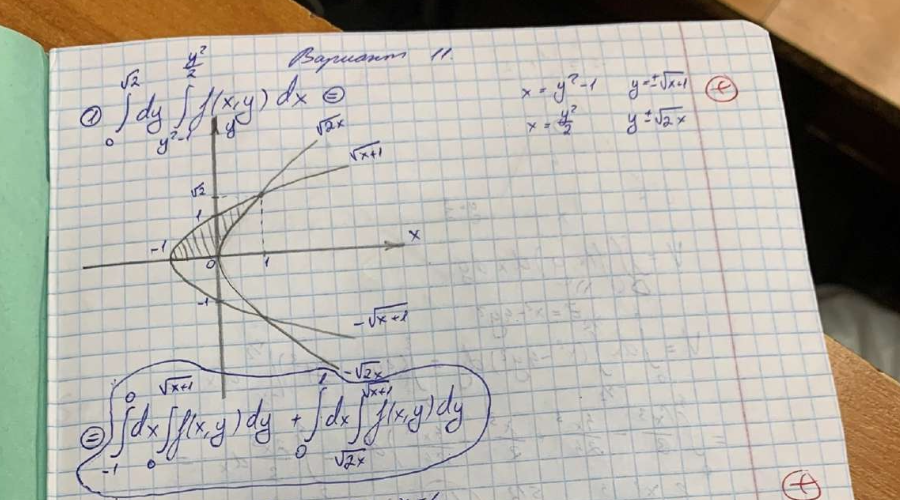 Вариант 11.
① ∫₀^√2 dy ∫_{y²-1}^{y²/2} f(x,y) dx =
x = y² - 1 y = ±√x+1
x = y²/2 y = ±√2x
+
y
√2x
√x+1
√2
1
-1 0 1 x
-1
-√x+1
-√2x
= ∫₋₁^0 dx ∫₀^√x+1 f(x,y) dy + ∫₀^1 dx ∫_{√2x}^{√x+1} f(x,y) dy
+